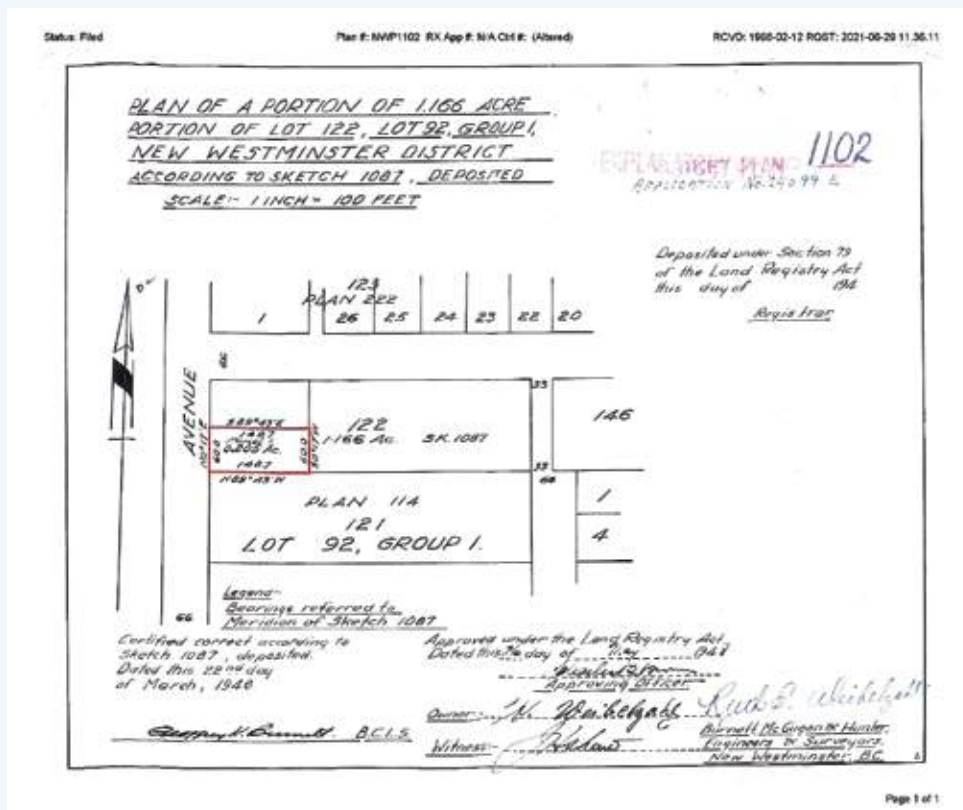 Status: Filed
Plan #: NWP1102 RX App #: N/A Ctrl #: (Altered)
RCVD: 1998-02-12 RQST: 2021-06-29 11.36.11
PLAN OF A PORTION OF 1.166 ACRE
PORTION OF LOT 122, LOT 92, GROUP 1,
NEW WESTMINSTER DISTRICT
ACCORDING TO SKETCH 1087, DEPOSITED
SCALE:- 1 INCH = 100 FEET
EXPLANATORY PLAN 1102
APPLICATION No.
Deposited under Section 79
of the Land Registry Act
this day of 194
Registrar
123
PLAN 222
1 26 25 24 23 22 20
66
AVENUE
33
146
122
1.166 Ac. SK. 1087
S 89° 43' E
148.7
60.0
60.0
148.7
N 89° 43' W
33
66
PLAN 114
121
LOT 92, GROUP 1.
1
4
66
Legend-
Bearings referred to
Meridian of Sketch 1087
Certified correct according to
Sketch 1087, deposited.
Dated this 22nd day
of March, 1948
B.C.L.S.
Approved under the Land Registry Act,
Dated this day of May 1948
Approving Officer
Owner:-
Witness:-
Burnett, McGugan & Hunter,
Engineers & Surveyors,
New Westminster, BC.
Page 1 of 1